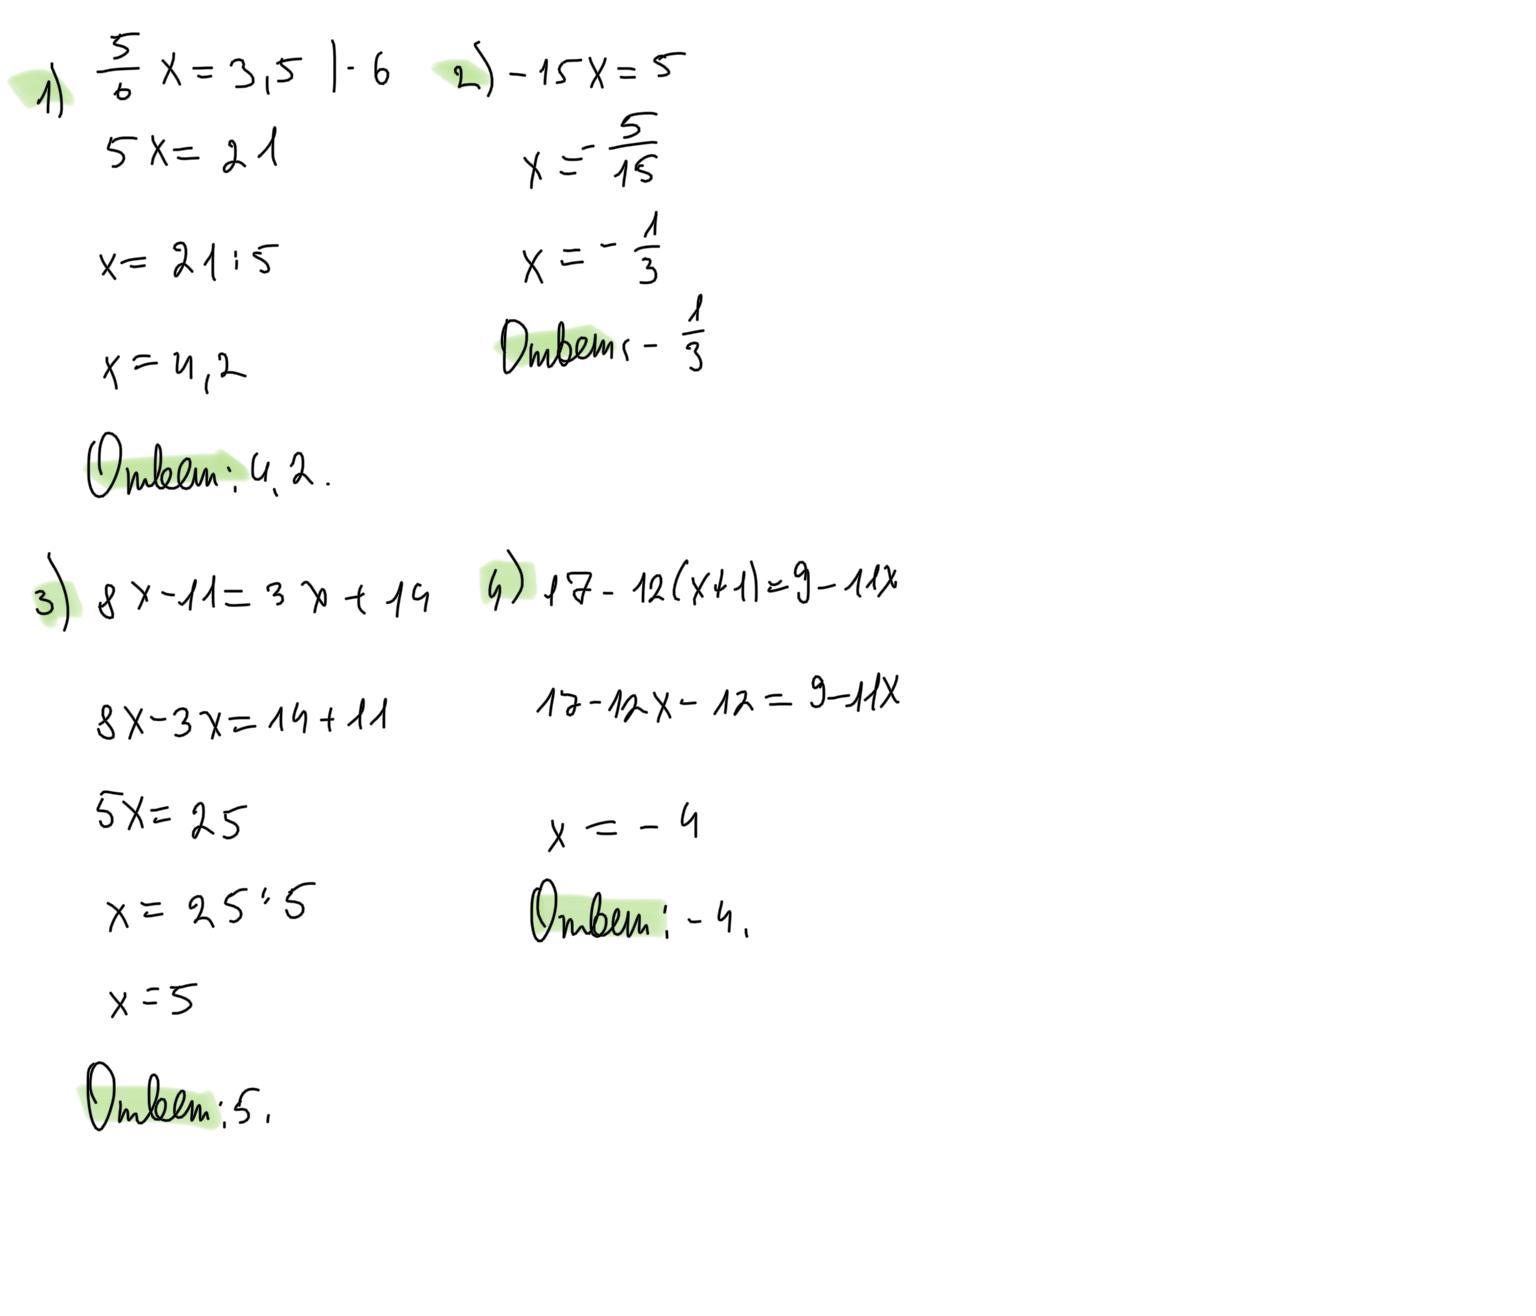 1) 5/6 x = 3,5 |· 6
5x = 21
x = 21 : 5
x = 4,2
Ответ: 4,2.
2) -15x = 5
x = - 5/15
x = - 1/3
Ответ: - 1/3
3) 8x - 11 = 3x + 14
8x - 3x = 14 + 11
5x = 25
x = 25 : 5
x = 5
Ответ: 5.
4) 17 - 12(x+1) = 9 - 11x
17 - 12x - 12 = 9 - 11x
x = - 4
Ответ: - 4.